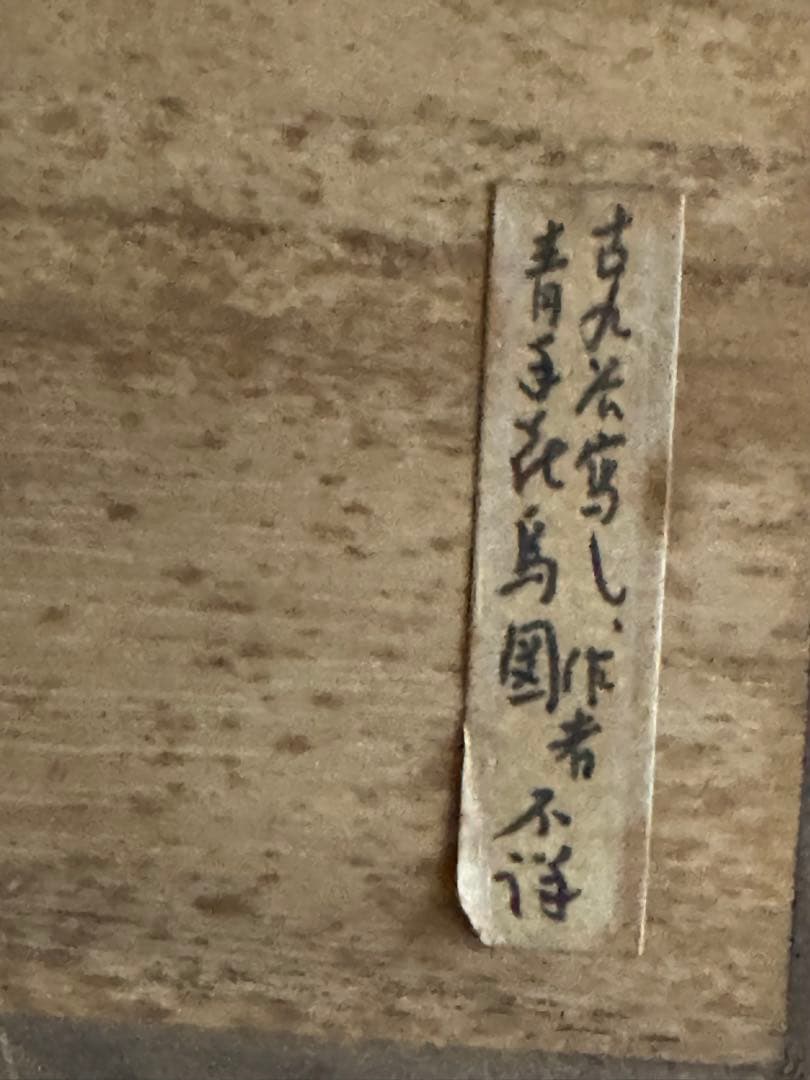 古九谷写し、作者不詳
青手花鳥図